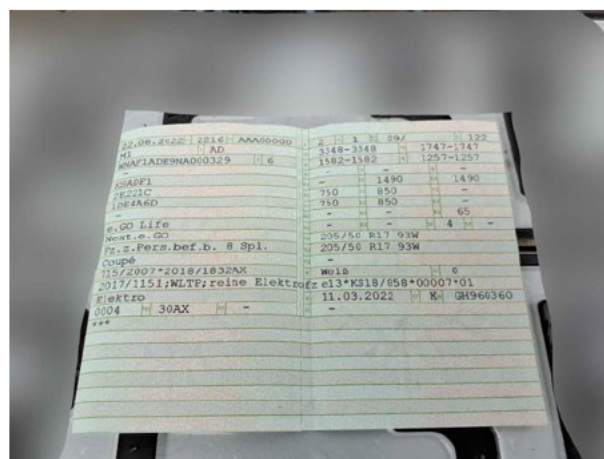 22.06.2022 2216 AAA00000
M1 AD
6
-
-
e.GO Life
Next.e.GO
Fz.z.Pers.bef.b. 8 Spl.
Coupé
715/2007*2018/1832AX
2017/1151;WLTP;reine Elektrofz
Elektro
0004 30AX -
***
2 1 29/ 122
3348-3348 1747-1747
1582-1582 1257-1257
- - -
- 1490 1490
750 850 -
750 850 -
- - 65
- - 4 -
205/50 R17 93W
205/50 R17 93W
-
Weiß 0
e13*KS18/858*00007*01
11.03.2022 K GH960360
-